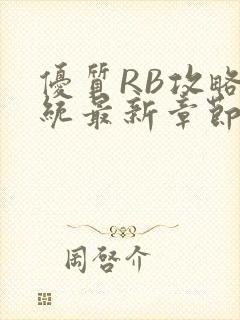 優質RB攻略
統最新章節
周啓介